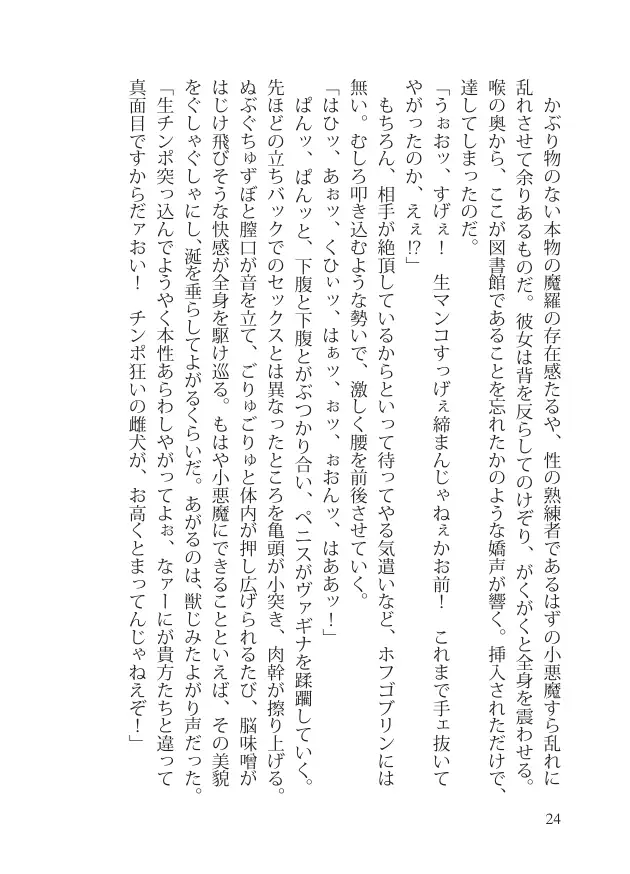 かぶり物のない本物の魔羅の存在感たるや、性の熟練者であるはずの小悪魔すら乱れに
乱れさせて余りあるものだ。彼女は背を反らしてのけぞり、がくがくと全身を震わせる。
喉の奥から、ここが図書館であることを忘れたかのような嬌声が響く。挿入されただけで、
達してしまったのだ。
「うぉおッ、すげぇ！　生マンコすっげぇ締まんじゃねぇかお前！　これまで手ェ抜いて
やがったのか、えぇ!?」
もちろん、相手が絶頂しているからといって待ってやる気遣いなど、ホフゴブリンには
無い。むしろ叩き込むような勢いで、激しく腰を前後させていく。
「はひッ、あぉッ、くひぃッ、はぁッ、ぉッ、ぉおんッ、はああッ！」
ぱんッ、ぱんッと、下腹と下腹とがぶつかり合い、ペニスがヴァギナを蹂躙していく。
先ほどの立ちバックでのセックスとは異なったところを亀頭が小突き、肉幹が擦り上げる。
ぬぶぐちゅずぼと膣口が音を立て、ごりゅごりゅと体内が押し広げられるたび、脳味噌が
はじけ飛びそうな快感が全身を駆け巡る。もはや小悪魔にできることといえば、その美貌
をぐしゃぐしゃにし、涎を垂らしてよがるくらいだ。あがるのは、獣じみたよがり声だった。
「生チンポ突っ込んでようやく本性あらわしやがってよぉ、なァーにが貴方たちと違って
真面目ですからだァおい！　チンポ狂いの雌犬が、お高くとまってんじゃねえぞ！」
24